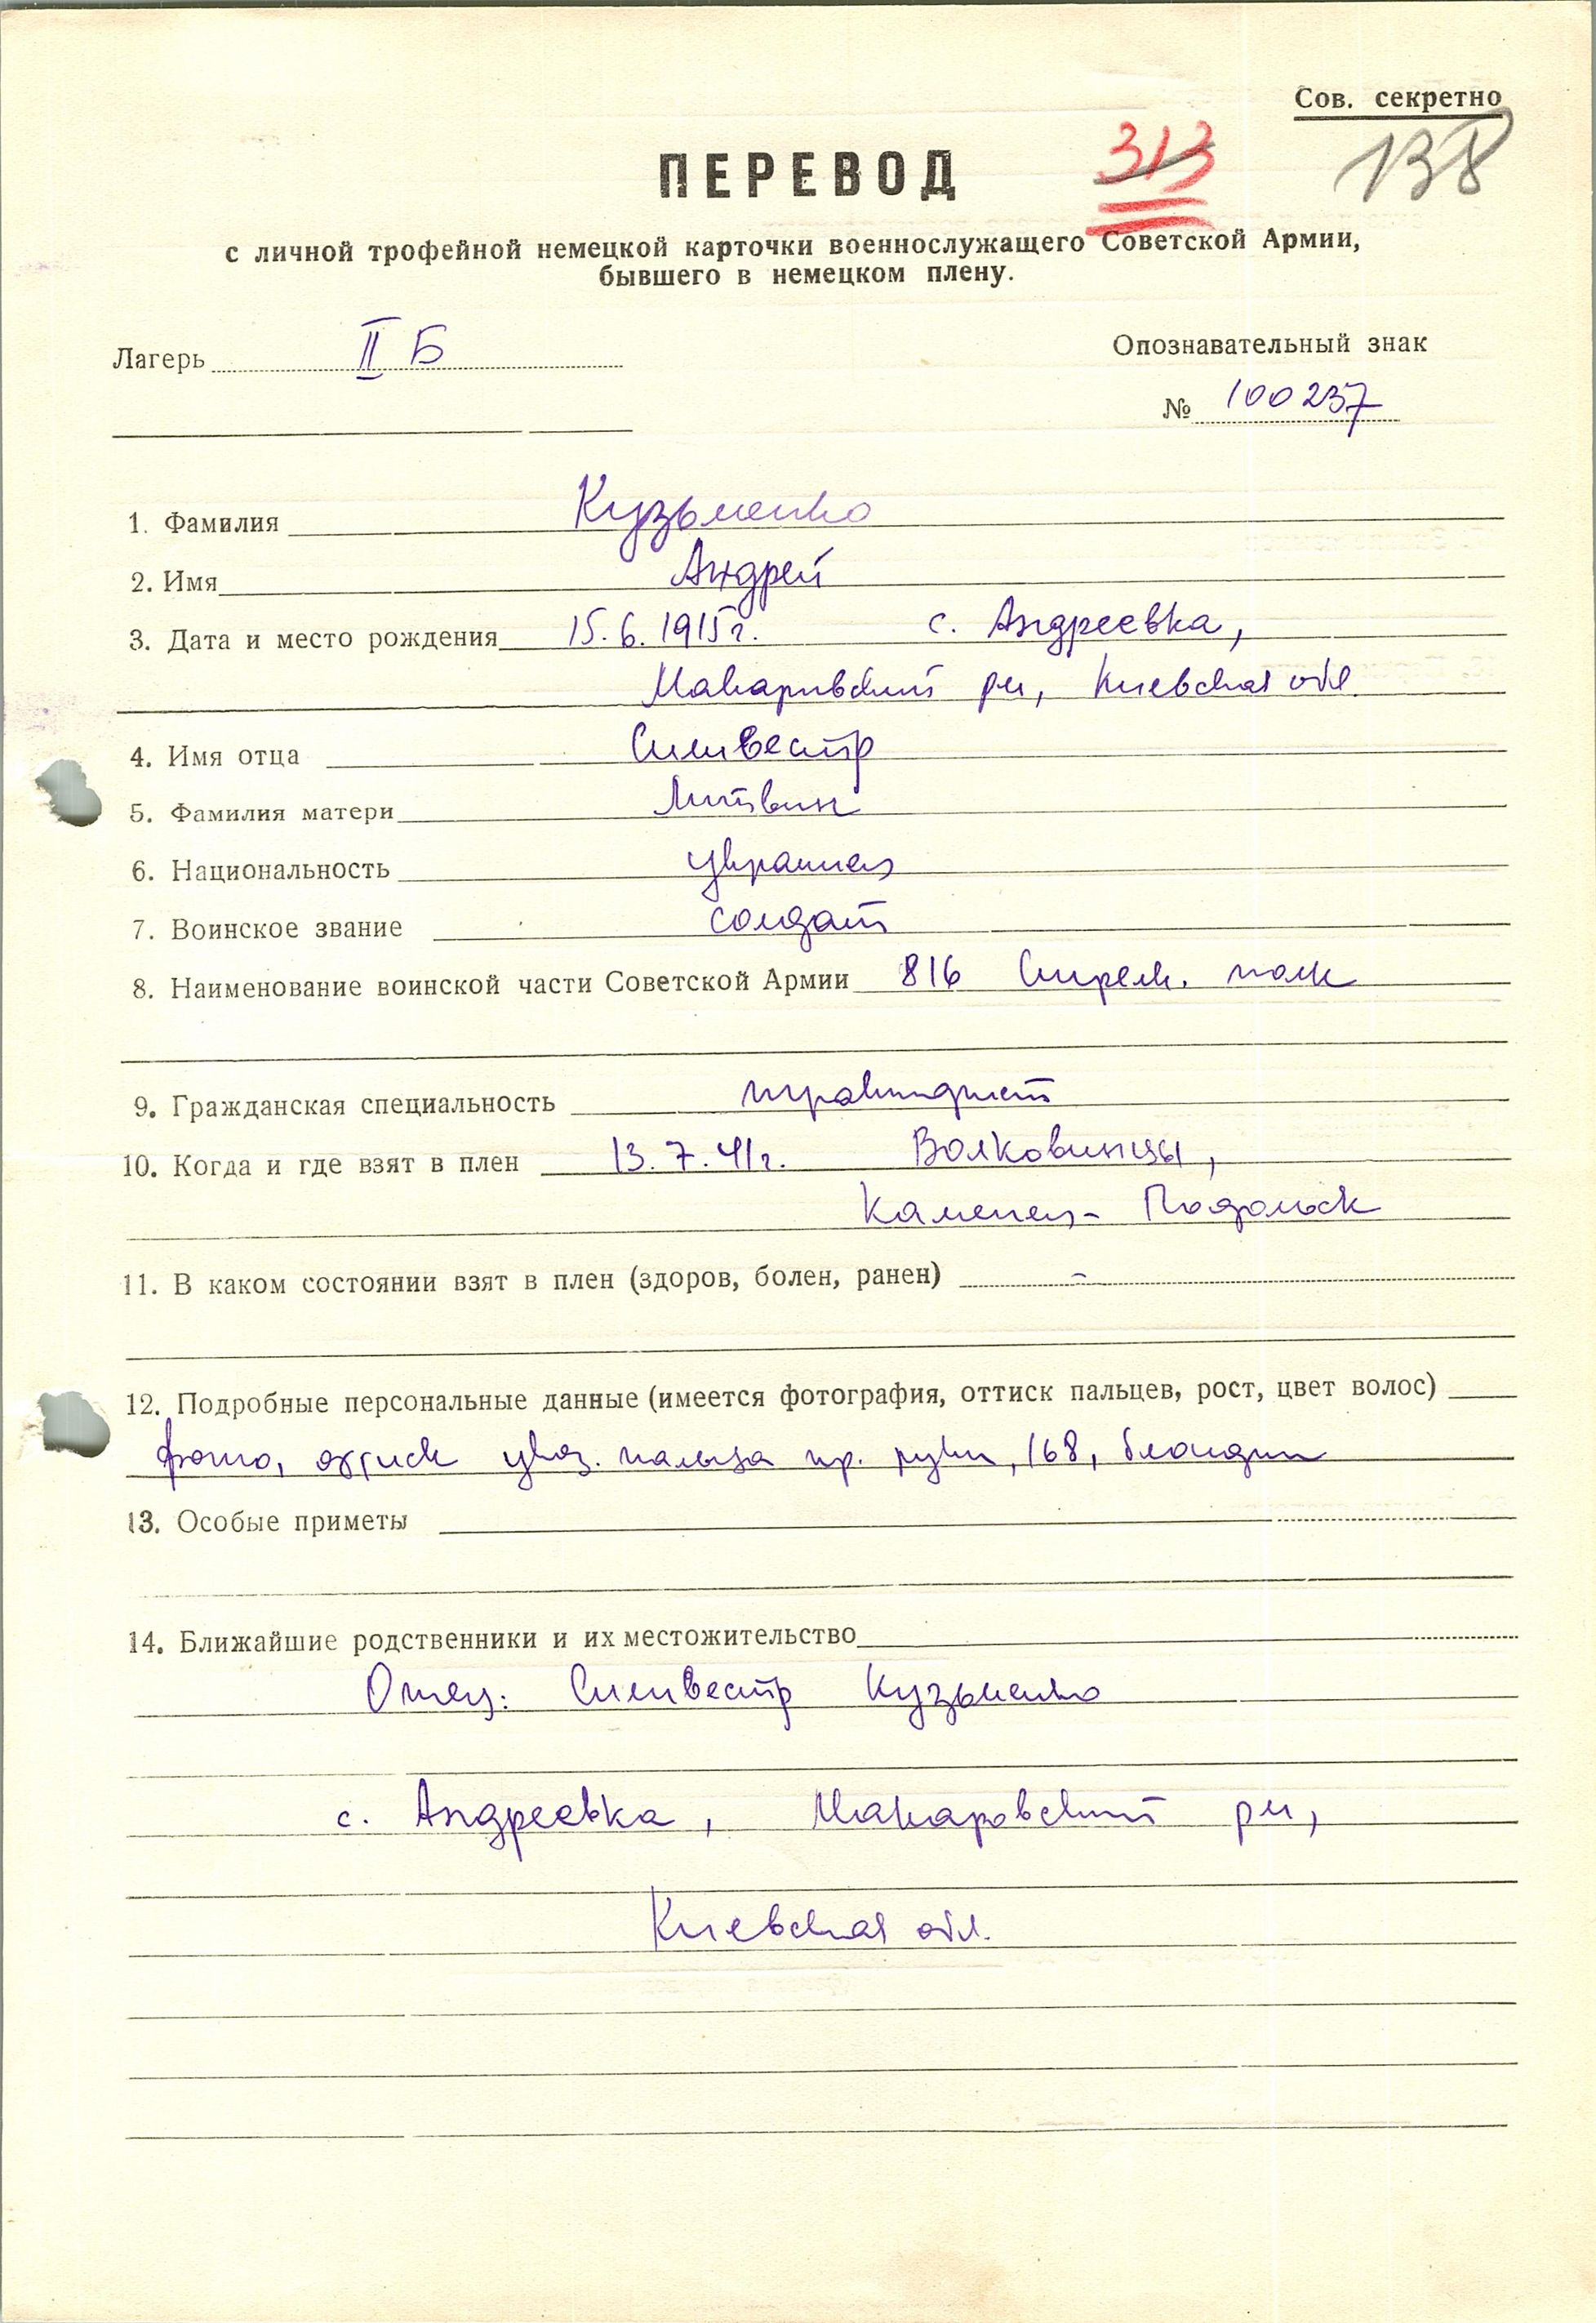 Сов. секретно
313 138
ПЕРЕВОД
с личной трофейной немецкой карточки военнослужащего Советской Армии,
бывшего в немецком плену.
Лагерь II Б Опознавательный знак
№ 100237
1. Фамилия Кузьменко
2. Имя Андрей
3. Дата и место рождения 15.6.1915г. с. Андреевка,
Макаровский рн, Киевская обл.
4. Имя отца Сильвестр
5. Фамилия матери Литвин
6. Национальность украинец
7. Воинское звание солдат
8. Наименование воинской части Советской Армии 816 Стрелк. полк
9. Гражданская специальность тракторист
10. Когда и где взят в плен 13.7.41г. Волковинцы,
Каменец-Подольск
11. В каком состоянии взят в плен (здоров, болен, ранен) –
12. Подробные персональные данные (имеется фотография, оттиск пальцев, рост, цвет волос)
фото, оттиск указ. пальца пр. руки, 168, блондин
13. Особые приметы
14. Ближайшие родственники и их местожительство
Отец: Сильвестр Кузьменко
с. Андреевка, Макаровский рн,
Киевская обл.